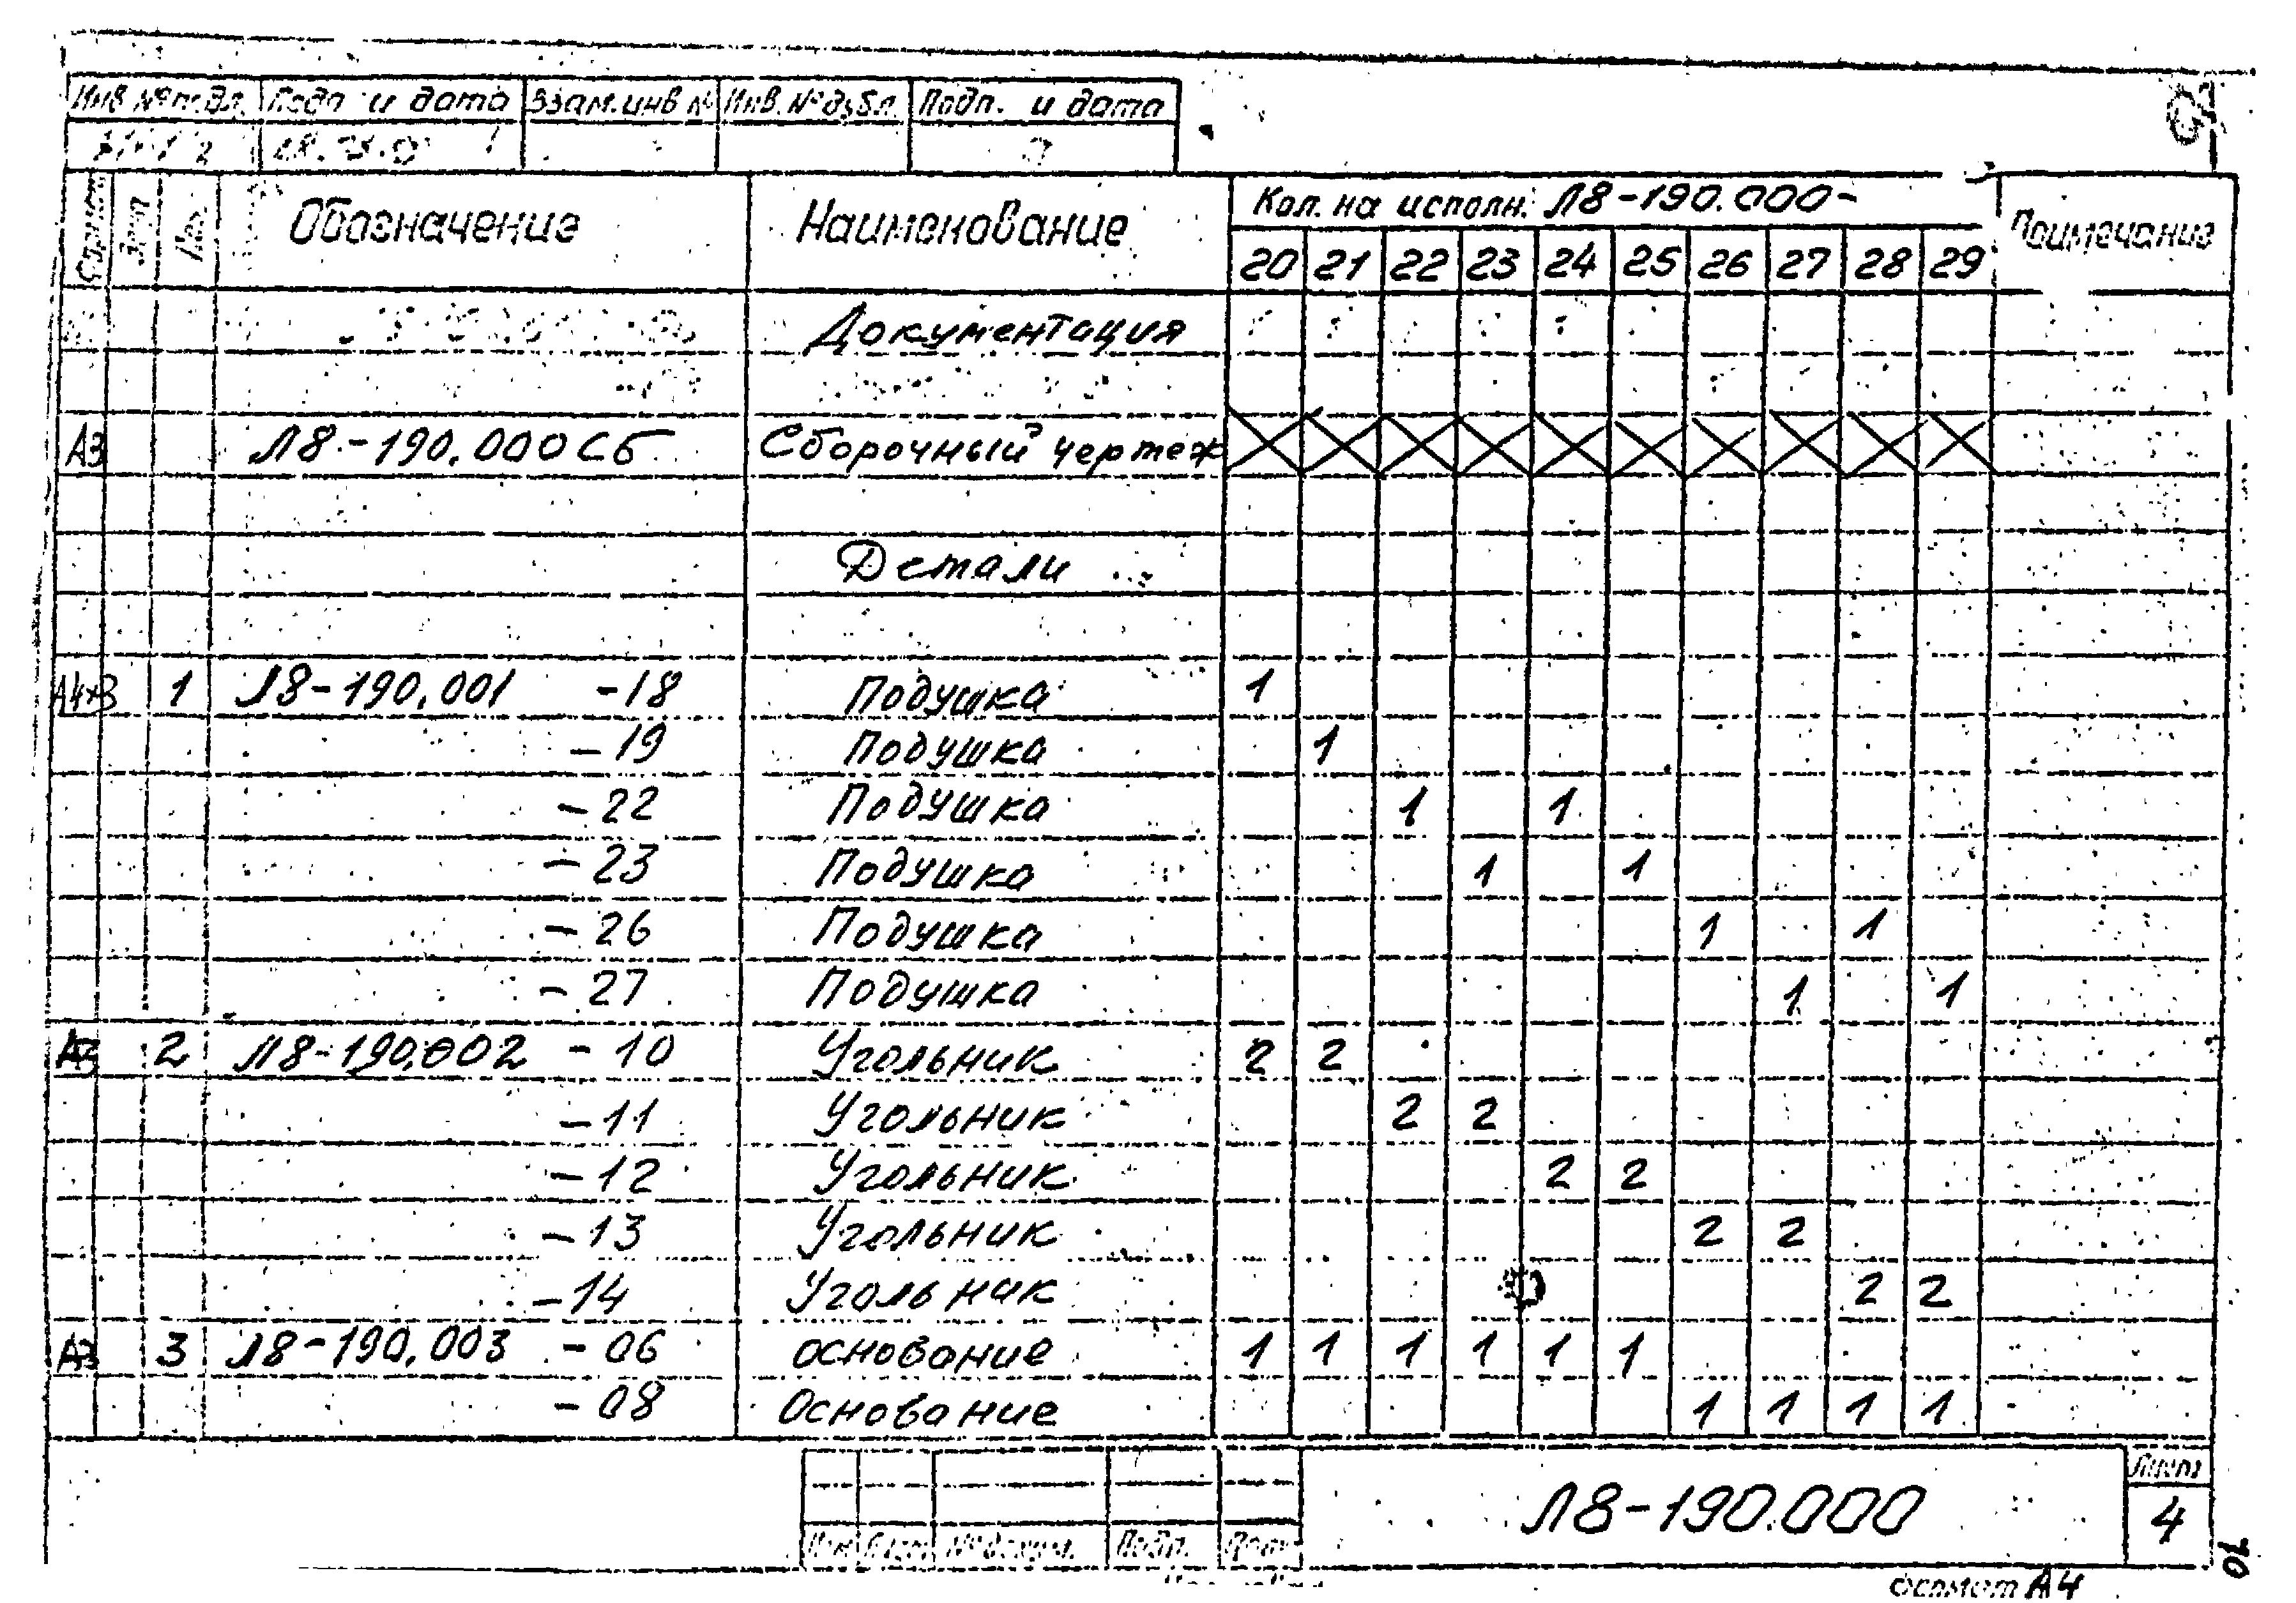 Инв № подл. Подп и дата Взам.инв № Инв. № дубл. Подп. и дата
Формат Зона Поз. Обозначение Наименование Кол. на исполн. Л8-190.000- Примечание
20 21 22 23 24 25 26 27 28 29
Документация
А3 Л8-190.000 СБ Сборочный чертеж
Детали
А4х3 1 Л8-190.001 -18 Подушка 1
-19 Подушка 1
-22 Подушка 1 1
-23 Подушка 1 1
-26 Подушка 1 1
-27 Подушка 1 1
А3 2 Л8-190.002 -10 Угольник 2 2
-11 Угольник 2 2
-12 Угольник 2 2
-13 Угольник 2 2
-14 Угольник 2 2
А3 3 Л8-190.003 -06 основание 1 1 1 1 1 1
-08 Основание 1 1 1 1
Л8-190.000
Лист
4
Изм Лист № докум. Подп. Дата
10
Формат А4